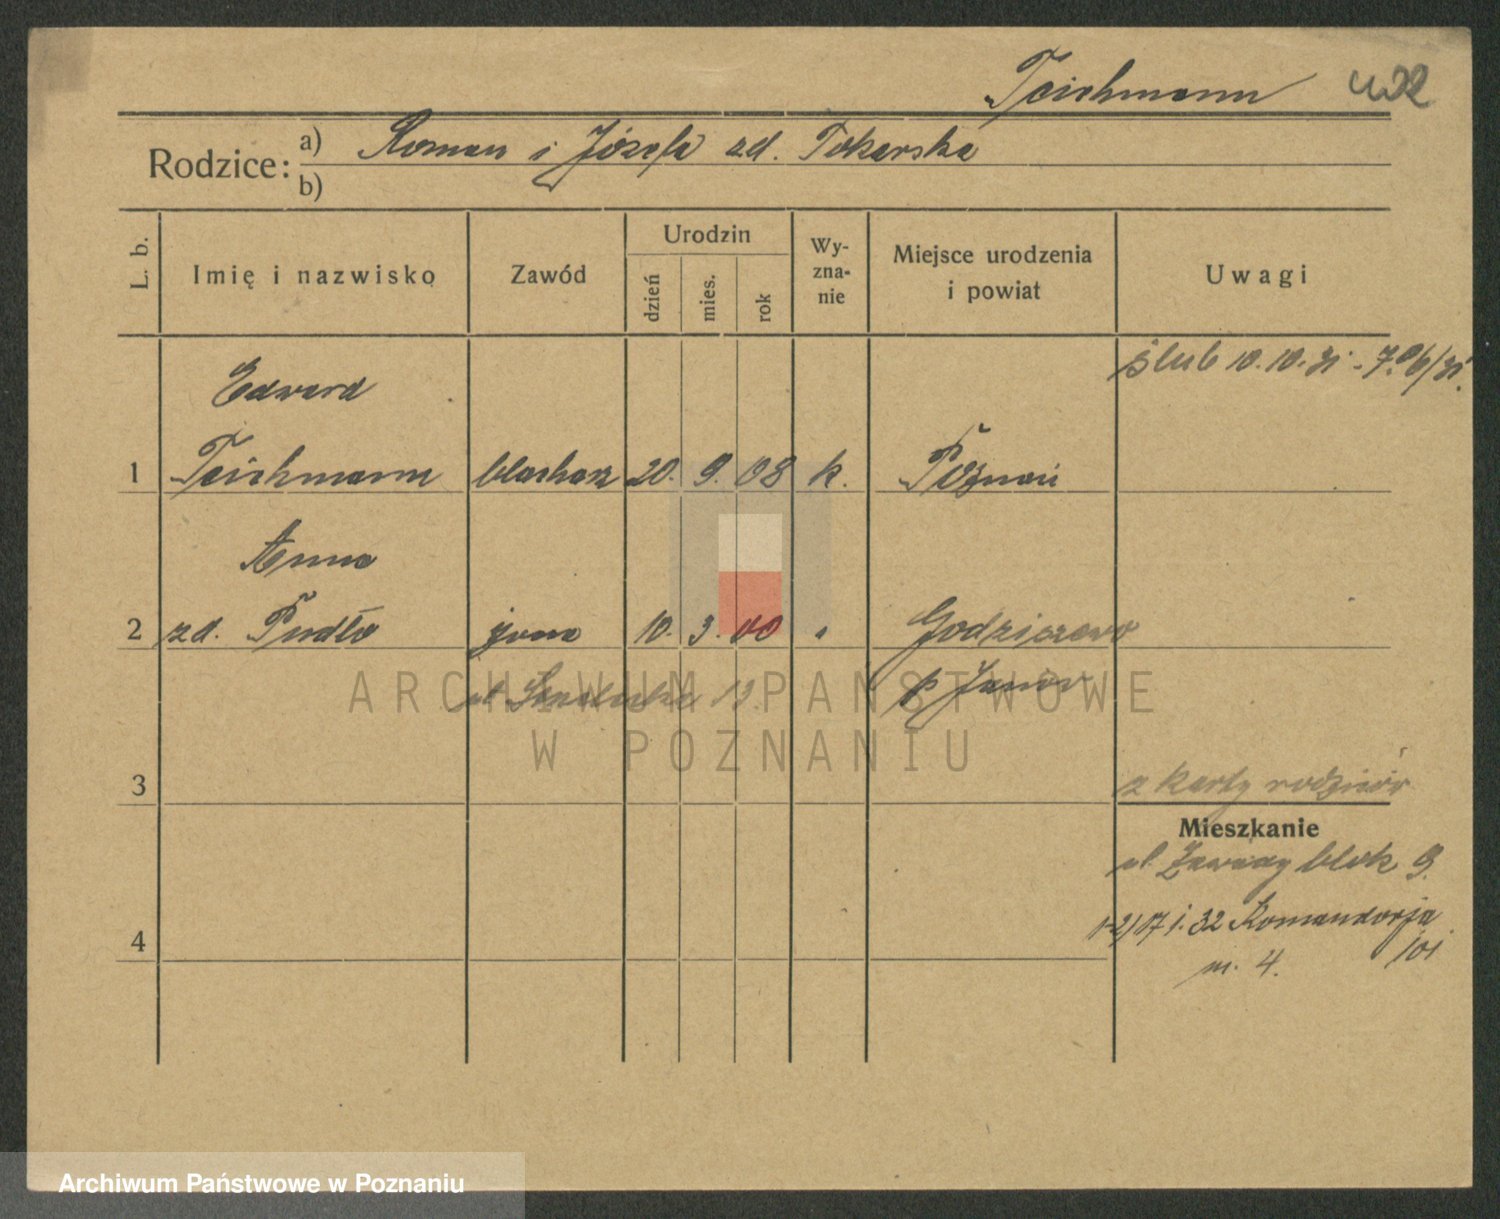 Teichmann
Rodzice:
a) Roman i Józefa zd. Tokarska
b)
L. b.
Imię i nazwisko
Zawód
Urodzin
dzień
mies.
rok
Wy-
zna-
nie
Miejsce urodzenia
i powiat
Uwagi
ślub 10.10.31
Edward
1 Teichmann blacharz 20. 9. 08 k. Poznań
Anna
2 zd. Pudło żona 10. 3. 00 " Godziszewo
ul. 13. p. Janów
ARCHIWUM PAŃSTWOWE
W POZNANIU
3
z karty rodziców
Mieszkanie
ul. Zawady blok 9.
1-2) 17.1.32 Komandorja
101
m. 4.
4
Archiwum Państwowe w Poznaniu